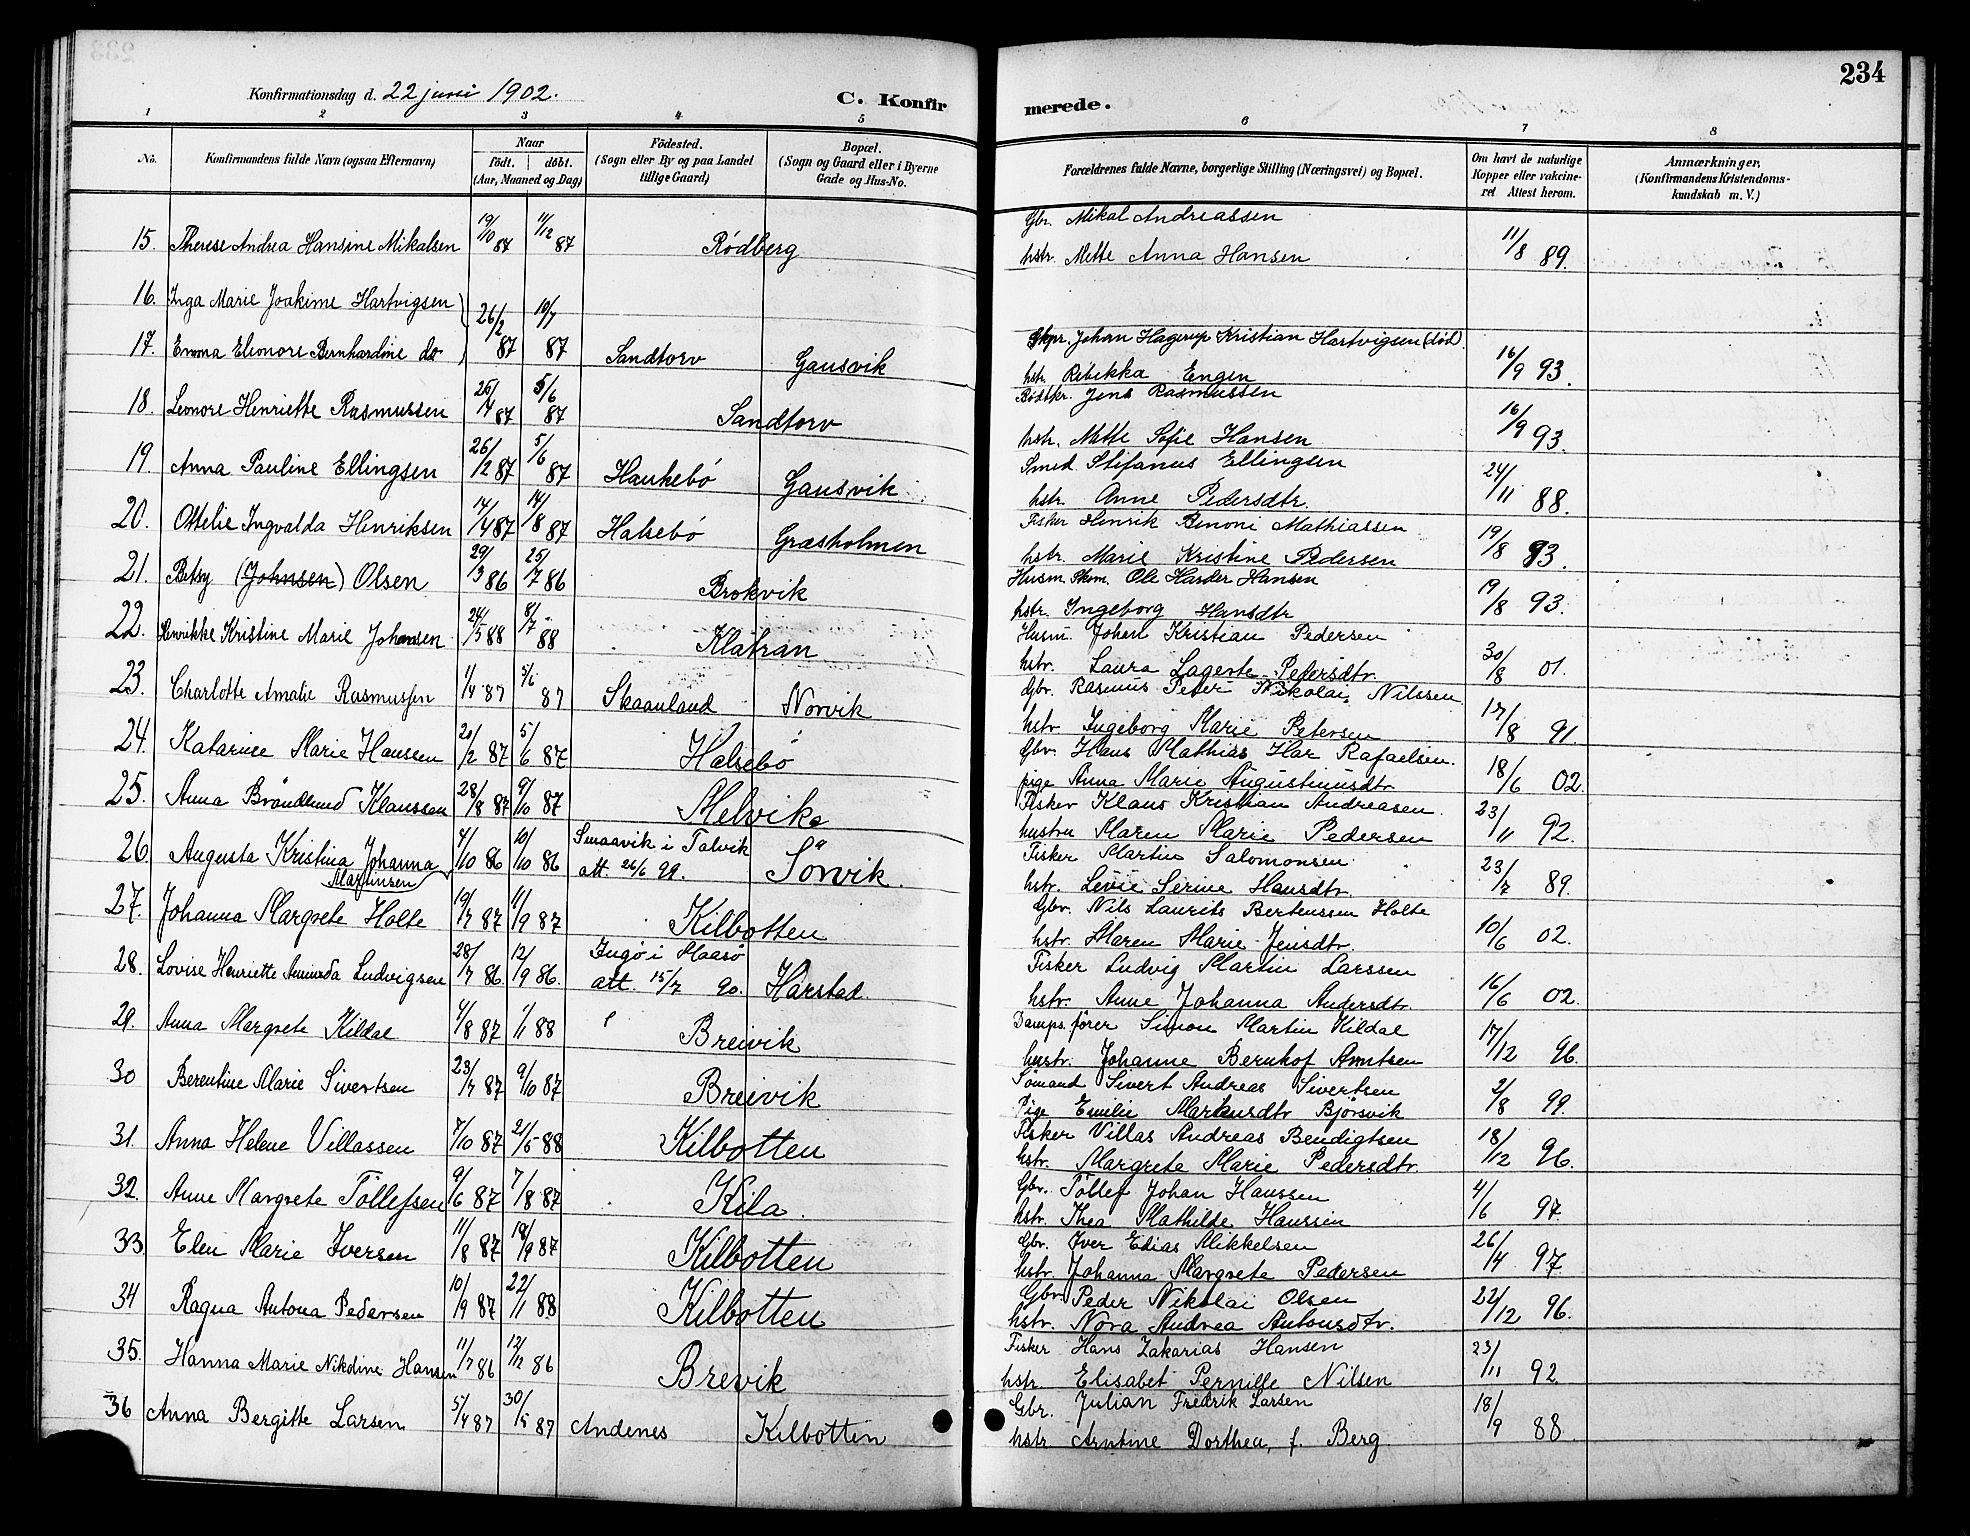 234
Konfirmationsdag d. 22 juni 1902.
C. Konfirmerede.
1 2 3 4 5 6 7 8
No.
Konfirmandens fulde Navn (ogsaa Efternavn)
Naar
født. døbt.
(Aar, Maaned og Dag)
Fødested.
(Sogn eller By og paa Landet
tillige Gaard)
Bopæl.
(Sogn og Gaard eller i Byerne
Gade og Hus-No.
Forældrenes fulde Navne, borgerlige Stilling (Næringsvei) og Bopæl.
Om havt de naturlige
Kopper eller vakcine-
ret Attest herom.
Anmærkninger,
(Konfirmandens Kristendoms-
kundskab m. V.)
15. Therese Andrea Hansine Mikalsen 19/10 87 11/12 87 Rødberg Gbr. Mikal Andreassen
hstr. Mette Anna Hansen 11/8 89.
16. Inga Marie Joakime Hartvigsen
17. Emma Eleonore Bernhardine do 26/2 87 10/7 87 Sandtorv Gausvik Skpr. Johan Hagerup Kristian Hartvigsen (død)
hstr. Rebekka Engen 16/9 93.
18. Leonore Henriette Rasmussen 25/4 87 5/6 87 Sandtorv Bødtkr. Jens Rasmussen
hstr. Mette Sofie Hansen 16/9 93.
19. Anna Pauline Ellingsen 26/2 87 5/6 87 Haukebø Gausvik Smed. Stefanus Ellingsen
hstr. Anne Pedersdtr. 24/11 88.
20. Ottelie Ingvalda Henriksen 14/4 87 14/8 87 Halsebø Græsholmen Fisker Henrik Benoni Mathiassen
hstr. Marie Kristine Pedersen 19/8 93.
21. Betsy (Johnsen) Olsen 29/3 86 25/7 86 Brokvik Husm. Skom. Ole Harder Hansen
hstr. Ingeborg Hansdtr 19/8 93.
22. Henrikke Kristine Marie Johansen 24/5 88 8/7 88 Klåtran Husm. Johan Kristian Pedersen
hstr. Laura Lagerte Pedersdtr. 30/8 01.
23. Charlotte Amalie Rasmussen 1/4 87 5/6 87 Skaanland Norvik Gbr. Rasmus Peter Nikolai Nilssen
hstr Ingeborg Marie Petersen 17/8 91.
24. Katarine Marie Hanssen 20/2 87 5/6 87 Halsebø Gbr. Hans Mathias Har Rafaelsen.
pige Anna Marie Augustinusdtr 18/6 02.
25. Anna Brøndlund Klaussen 28/8 87 9/10 87 Melvik Fisker Klaus Kristian Andreasen
hustru Maren Marie Pedersen 23/11 92.
26 Augusta Kristina Johanna
Martinsen 4/10 86 10/10 86 Smaavik i Talvik
att. 26/6 99. Sørvik. Fisker Martin Salomonsen.
hstr. Levie Serine Hansdtr. 23/7 89.
27. Johanna Margrete Holte 19/7 87 11/9 87 Kilbotten Gbr. Nils Laurits Bertenssen Holte
hstr. Maren Marie Jensdtr. 10/6 02.
28. Lovise Henriette Aminda Ludvigsen 28/7 86 12/9 86. Ingø i Maasø
att. 15/7 90. Harstad. Fisker Ludvig Martin Larssen
hstr. Anne Johanna Andersdtr. 16/6 02.
29. Anna Margrete Kildal 4/8 87 1/1 88 Breivik Damps.fører Simon Martin Kildal
hustr. Johanne Bernhof Arntsen 17/12 96.
30 Berentine Marie Sivertsen 23/7 87 9/10 87 Breivik Sømand Sivert Andreas Sivertsen
Pige Emilie Markusdtr Bjørsvik 2/8 99.
31. Anna Helene Villassen 7/10 87 21/5 88 Kilbotten Fisker Villas Andreas Bendigtsen
hstr. Margrete Marie Pedersdtr 18/12 96.
32. Anne Margrete Tollefsen 9/6 87 7/8 87 Kila. Gbr. Tollef Johan Hanssen
hstr. Thea Mathilde Hanssen 4/6 97.
33. Elen Marie Iversen 11/8 87 18/9 87 Kilbotten Gbr. Iver Edias Mikkelsen
hstr. Johanna Margrete Pedersen 26/4 97.
34 Ragna Antona Pedersen 10/9 87 22/1 88 Kilbotten Gbr Peder Nikolai Olsen
hstr. Nora Andrea Antonsdtr. 22/12 96.
35. Hanna Marie Nikoline Hansen 11/7 86 12/12 86 Brevik Fisker Hans Zakarias Hansen
hstr. Elisabet Pernille Nilsen 23/11 92
36 Anna Bergitte Larsen 5/4 87 30/5 87 Andenes Kilbotten Gbr. Julian Fredrik Larsen
hstr. Arntine Dorthea, f. Berg. 18/9 88.